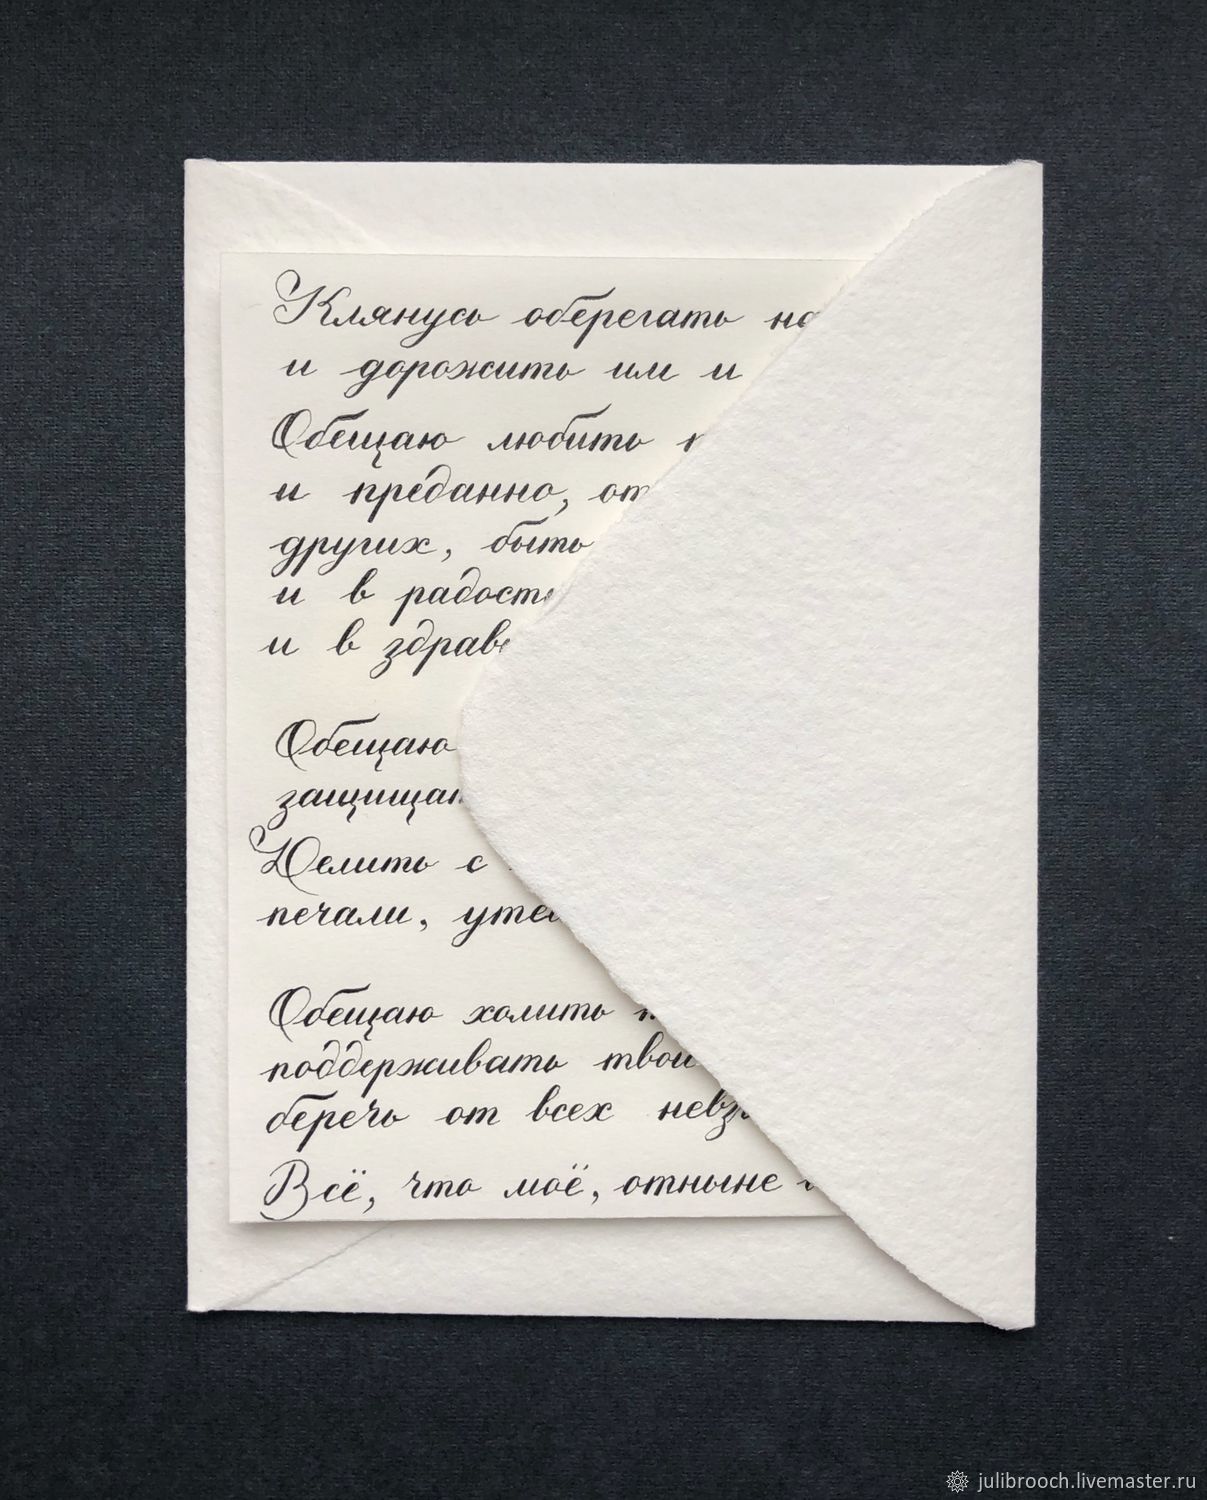 Клянусь оберегать
и дорожить им и
Обещаю любить
и преданно,
других, быть
и в
и в
Обещаю
Делить с
печали,
Обещаю холить
поддерживать
беречь от всех
Всё, что моё, отныне
julibrooch.livemaster.ru